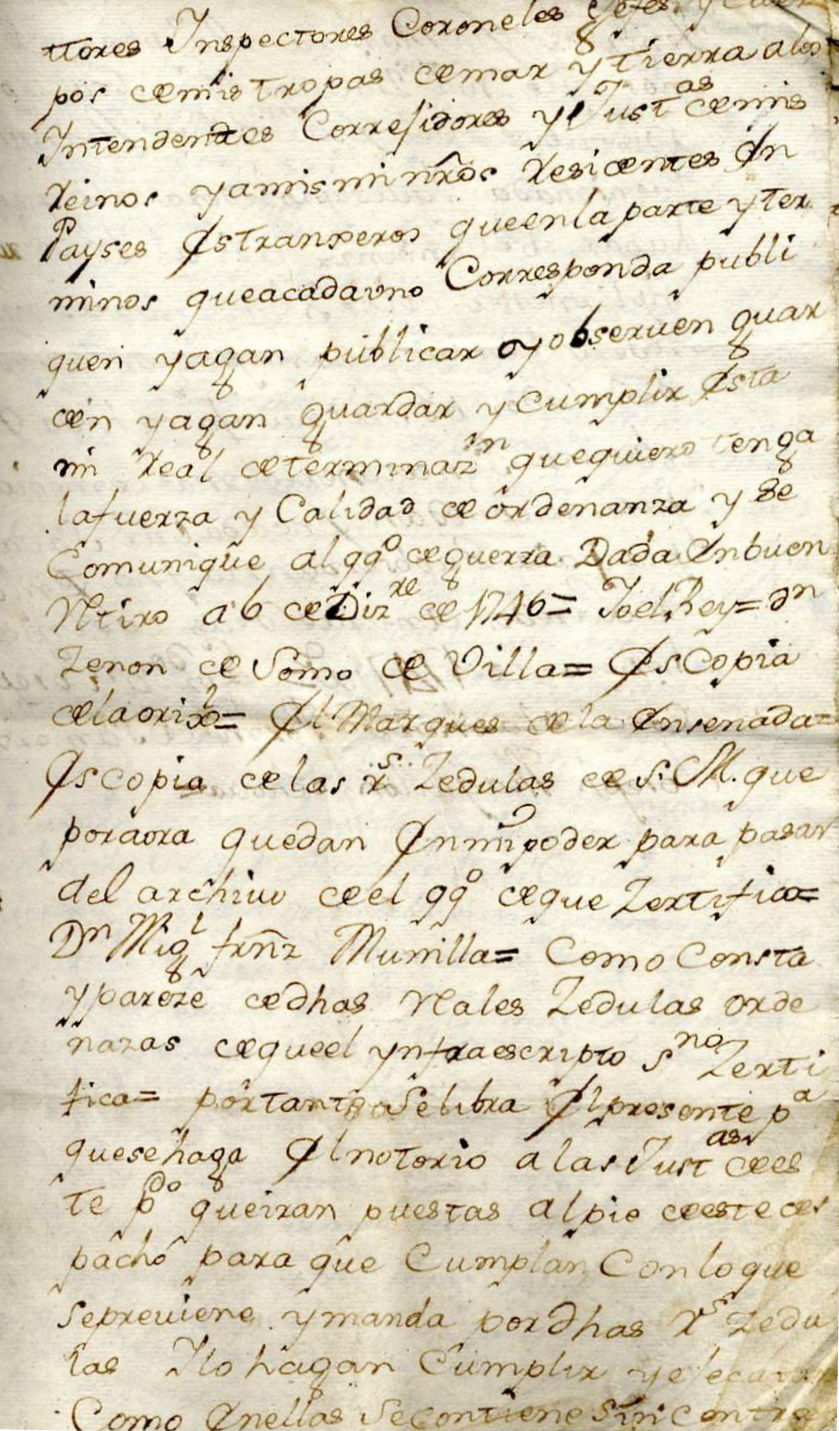 ttores Inspectores Coroneles Gefes y Cuer
pos demis tropas demar y tierra alos
Intendentes Corresidores y Just.as demis
Reinos yamis minrõs Residentes En
Payses Estranxeros queenla parte y ter
minos queacadavno Corresponda publi
quen yagan publicar oyobseruen guar
den yagan guardar y Cumplir Esta
mi Real determinaz.n quequiero tenga
lafuerza y Calidad de ordenanza y se
Comunique al qq.o deguerra Dada Enbuen
Rtiro a 6 deDiz.re de 1746= Yoel Rey= Dn
Zenon de Somo de Villa= EsCopia
delaorix.l= El Marques dela Ensenada=
Escopia delas r.s Zedulas de S. M. que
poraora quedan Enmipoder para pasar
del archiuo deel qq.o deque Zertifico=
Dn Mig.l frnz Munilla= Como Consta
ypareze dedhas Rales Zedulas orde
nazas dequeel ynfraescripto s.no Zerti
fica= portanto Selibra Elpresente p.a
quesehaga Elnotorio alas Just.as dees
te p.do queiran puestas alpie deeste des
pacho para que Cumplan Conloque
sepreuiene ymanda pordhas r.s Zedu
las Ylo hagan Cumplir yejecutar
Como Enellas Secontiene sin contra